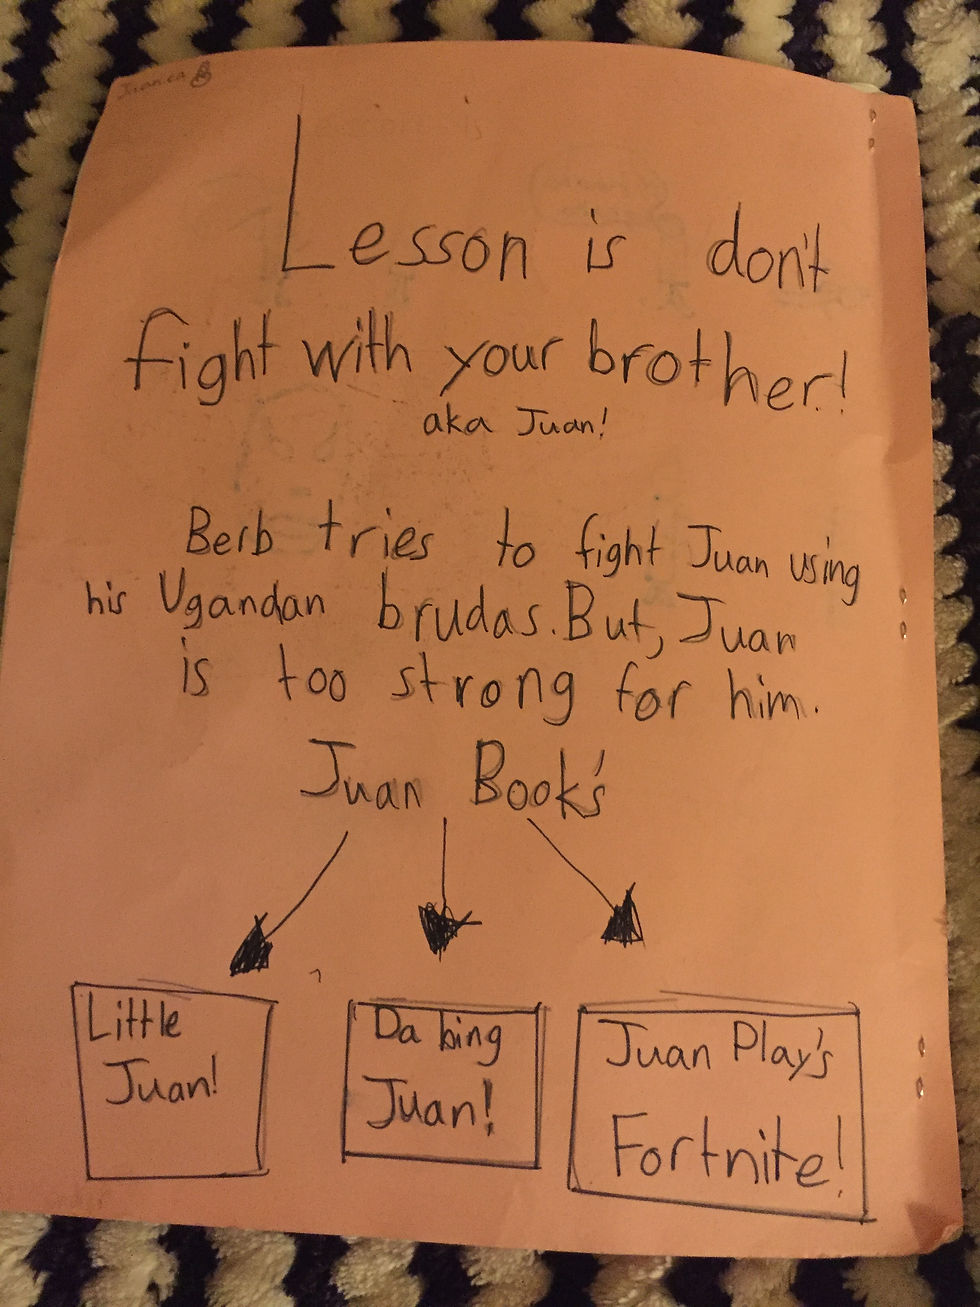 Lesson is don't
fight with your brother!
aka Juan!
Berb tries to fight Juan using
his Ugandan brudas. But, Juan
is too strong for him.
Juan Book's
Little
Juan!
Da bing
Juan!
Juan Play's
Fortnite!